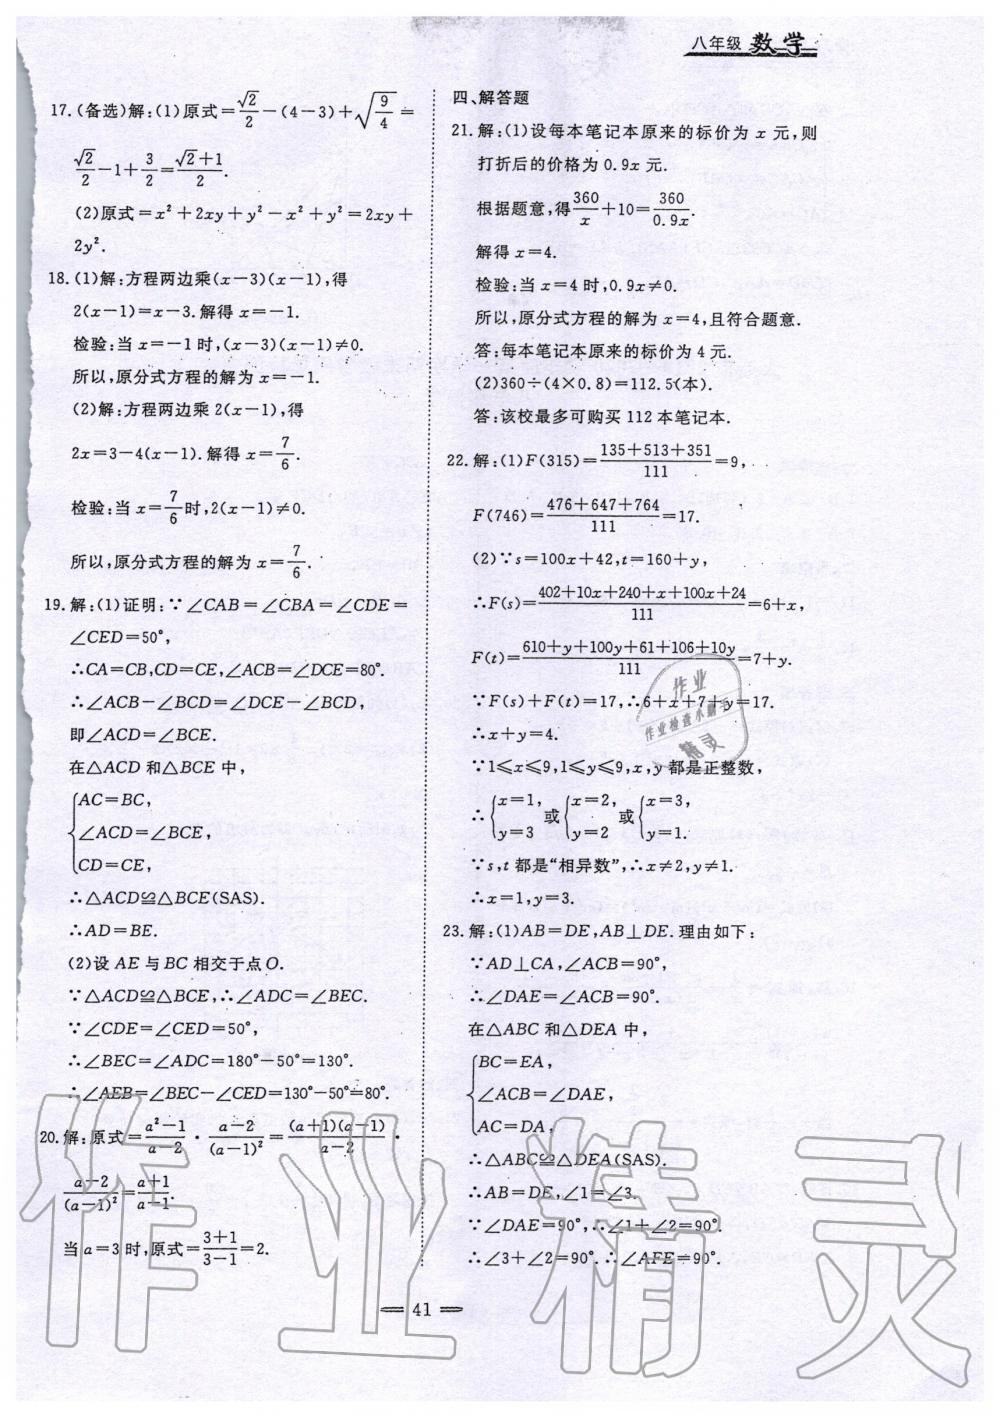 八年级 数学
17.(备选)解:(1)原式=√2/2-(4-3)+√(9/4)=
√2/2-1+3/2=(√2+1)/2.
(2)原式=x²+2xy+y²-x²+y²=2xy+
2y².
18.(1)解:方程两边乘(x-3)(x-1),得
2(x-1)=x-3.解得x=-1.
检验:当x=-1时,(x-3)(x-1)≠0.
所以,原分式方程的解为x=-1.
(2)解:方程两边乘2(x-1),得
2x=3-4(x-1).解得x=7/6.
检验:当x=7/6时,2(x-1)≠0.
所以,原分式方程的解为x=7/6.
19.解:(1)证明:∵∠CAB=∠CBA=∠CDE=
∠CED=50°,
∴CA=CB,CD=CE,∠ACB=∠DCE=80°.
∴∠ACB-∠BCD=∠DCE-∠BCD,
即∠ACD=∠BCE.
在△ACD和△BCE中,
{AC=BC,
∠ACD=∠BCE,
CD=CE,
∴△ACD≌△BCE(SAS).
∴AD=BE.
(2)设AE与BC相交于点O.
∵△ACD≌△BCE,∴∠ADC=∠BEC.
∵∠CDE=∠CED=50°,
∴∠BEC=∠ADC=180°-50°=130°.
∴∠AEB=∠BEC-∠CED=130°-50°=80°.
20.解:原式=(a²-1)/(a-2)·(a-2)/(a-1)²=(a+1)(a-1)/(a-2)·
(a-2)/(a-1)²=(a+1)/(a-1).
当a=3时,原式=(3+1)/(3-1)=2.
四、解答题
21.解:(1)设每本笔记本原来的标价为x元,则
打折后的价格为0.9x元.
根据题意,得360/x+10=360/0.9x.
解得x=4.
检验:当x=4时,0.9x≠0.
所以,原分式方程的解为x=4,且符合题意.
答:每本笔记本原来的标价为4元.
(2)360÷(4×0.8)=112.5(本).
答:该校最多可购买112本笔记本.
22.解:(1)F(315)=(135+513+351)/111=9,
F(746)=(476+647+764)/111=17.
(2)∵s=100x+42,t=160+y,
∴F(s)=(402+10x+240+x+100x+24)/111=6+x,
F(t)=(610+y+100y+61+106+10y)/111=7+y.
∵F(s)+F(t)=17,∴6+x+7+y=17.
∴x+y=4.
∵1≤x≤9,1≤y≤9,x,y都是正整数,
∴{x=1, y=3 或{x=2, y=2 或{x=3, y=1.
∵s,t都是“相异数”,∴x≠2,y≠1.
∴x=1,y=3.
23.解:(1)AB=DE,AB⊥DE.理由如下:
∵AD⊥CA,∠ACB=90°,
∴∠DAE=∠ACB=90°.
在△ABC和△DEA中,
{BC=EA,
∠ACB=∠DAE,
AC=DA,
∴△ABC≌△DEA(SAS).
∴AB=DE,∠1=∠3.
∵∠DAE=90°,∴∠1+∠2=90°.
∴∠3+∠2=90°.∴∠AFE=90°.
作业
作业检查小助手
精灵
作业精灵
41